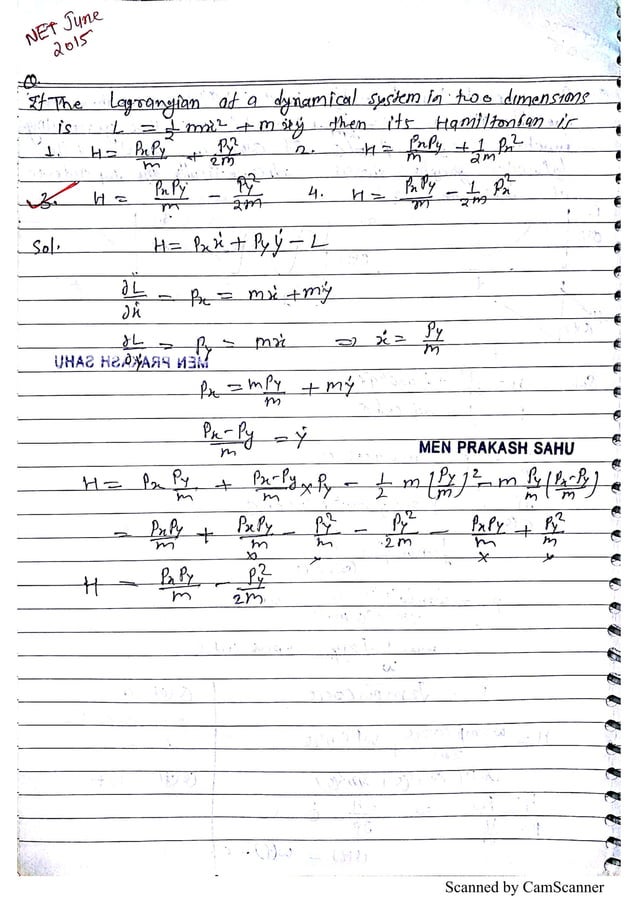 NET June
2015
Q.
If The Lagrangian of a dynamical system in two dimensions
is L = 1/2 mẋ² + mẋẏ then its Hamiltonian is
1. H = PxPy/m + Py²/2m 2. H = PxPy/m + 1/2m Px²
3. H = PxPy/m - Py²/2m 4. H = PxPy/m - 1/2m Px²
Sol. H = Pxẋ + Pyẏ - L
∂L/∂ẋ = Px = mẋ + mẏ
∂L/∂ẏ = Py = mẋ ⇒ ẋ = Py/m
MEN PRAKASH SAHU
Px = mPy/m + mẏ
Px-Py/m = ẏ
MEN PRAKASH SAHU
H = Px Py/m + Px-Py/m × Py - 1/2 m [Py/m]² - m Py/m (Px-Py/m)
= PxPy/m + PxPy/m - Py²/m - Py²/2m - PxPy/m + Py²/m
H = PxPy/m - Py²/2m
Scanned by CamScanner